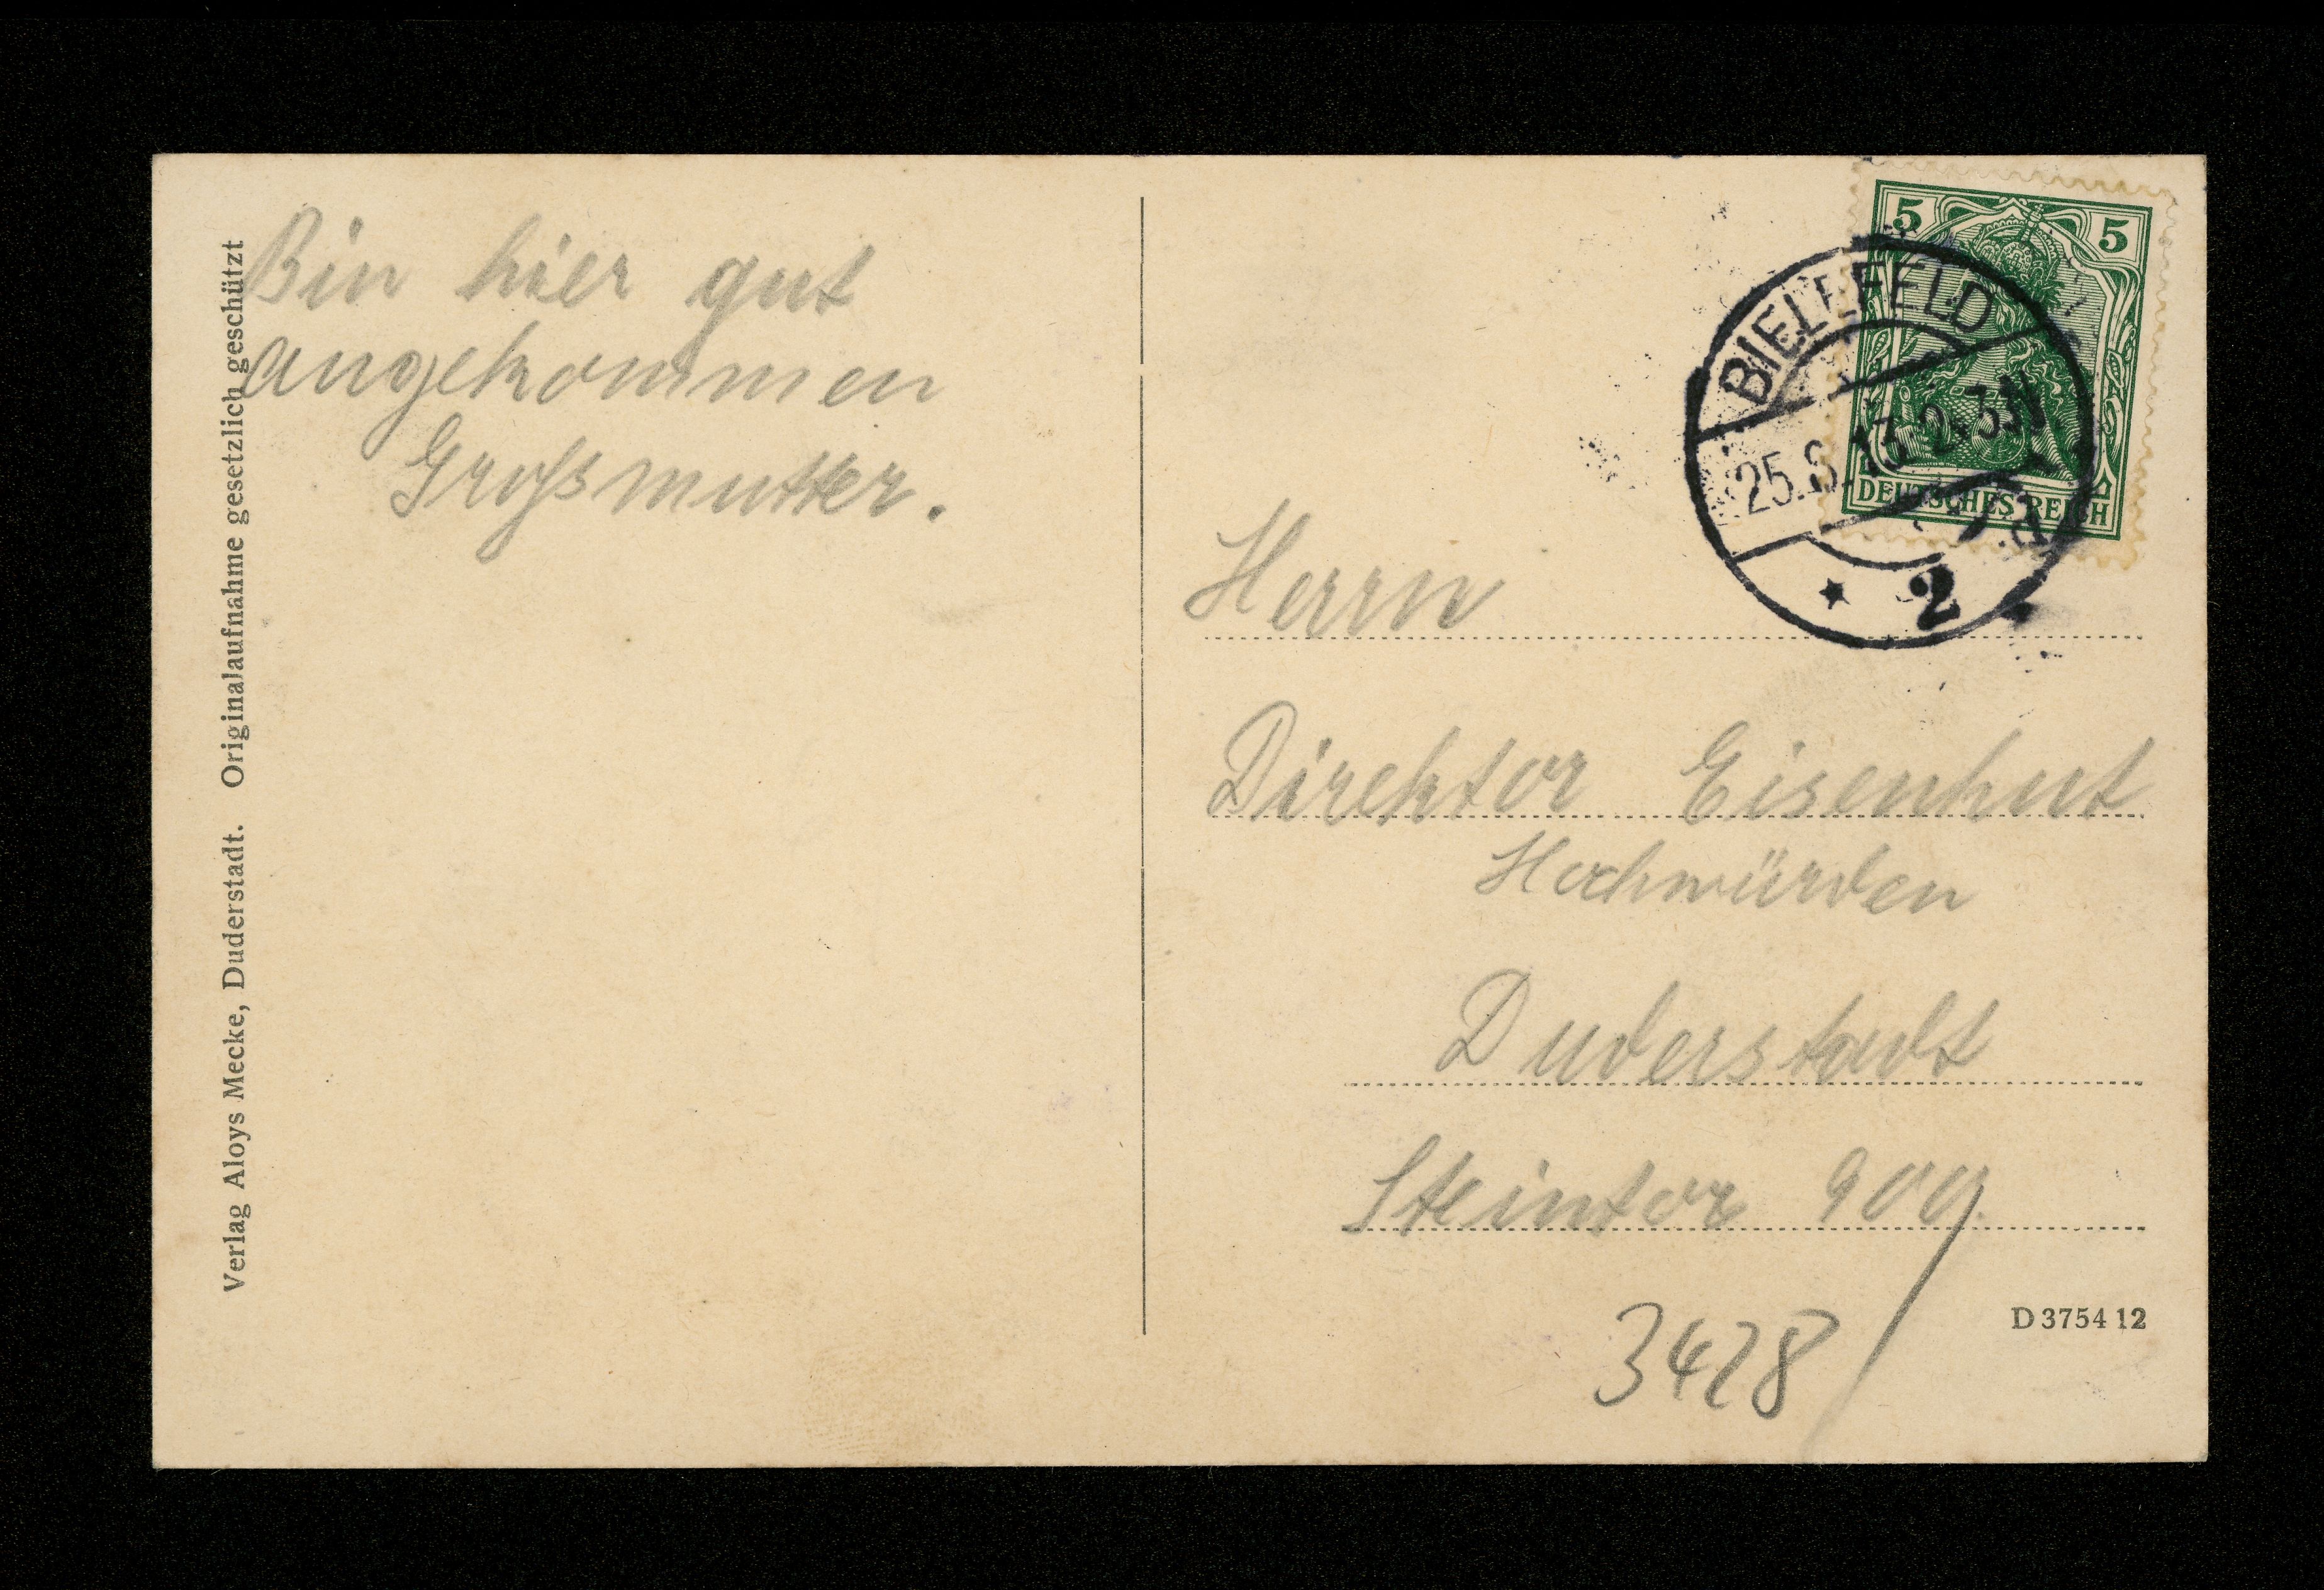 Bin hier gut
angekommen
Grossmutter.
Verlag Aloys Mecke, Duderstadt. Originalaufnahme gesetzlich geschützt
5 5
DEUTSCHES REICH
BIELEFELD
25.8.13. 2-3N
* 2 d.
Herrn
Direktor Eisenhut
Hochwürden
Duderstadt
Steintor 909.
3428
D 3754 12